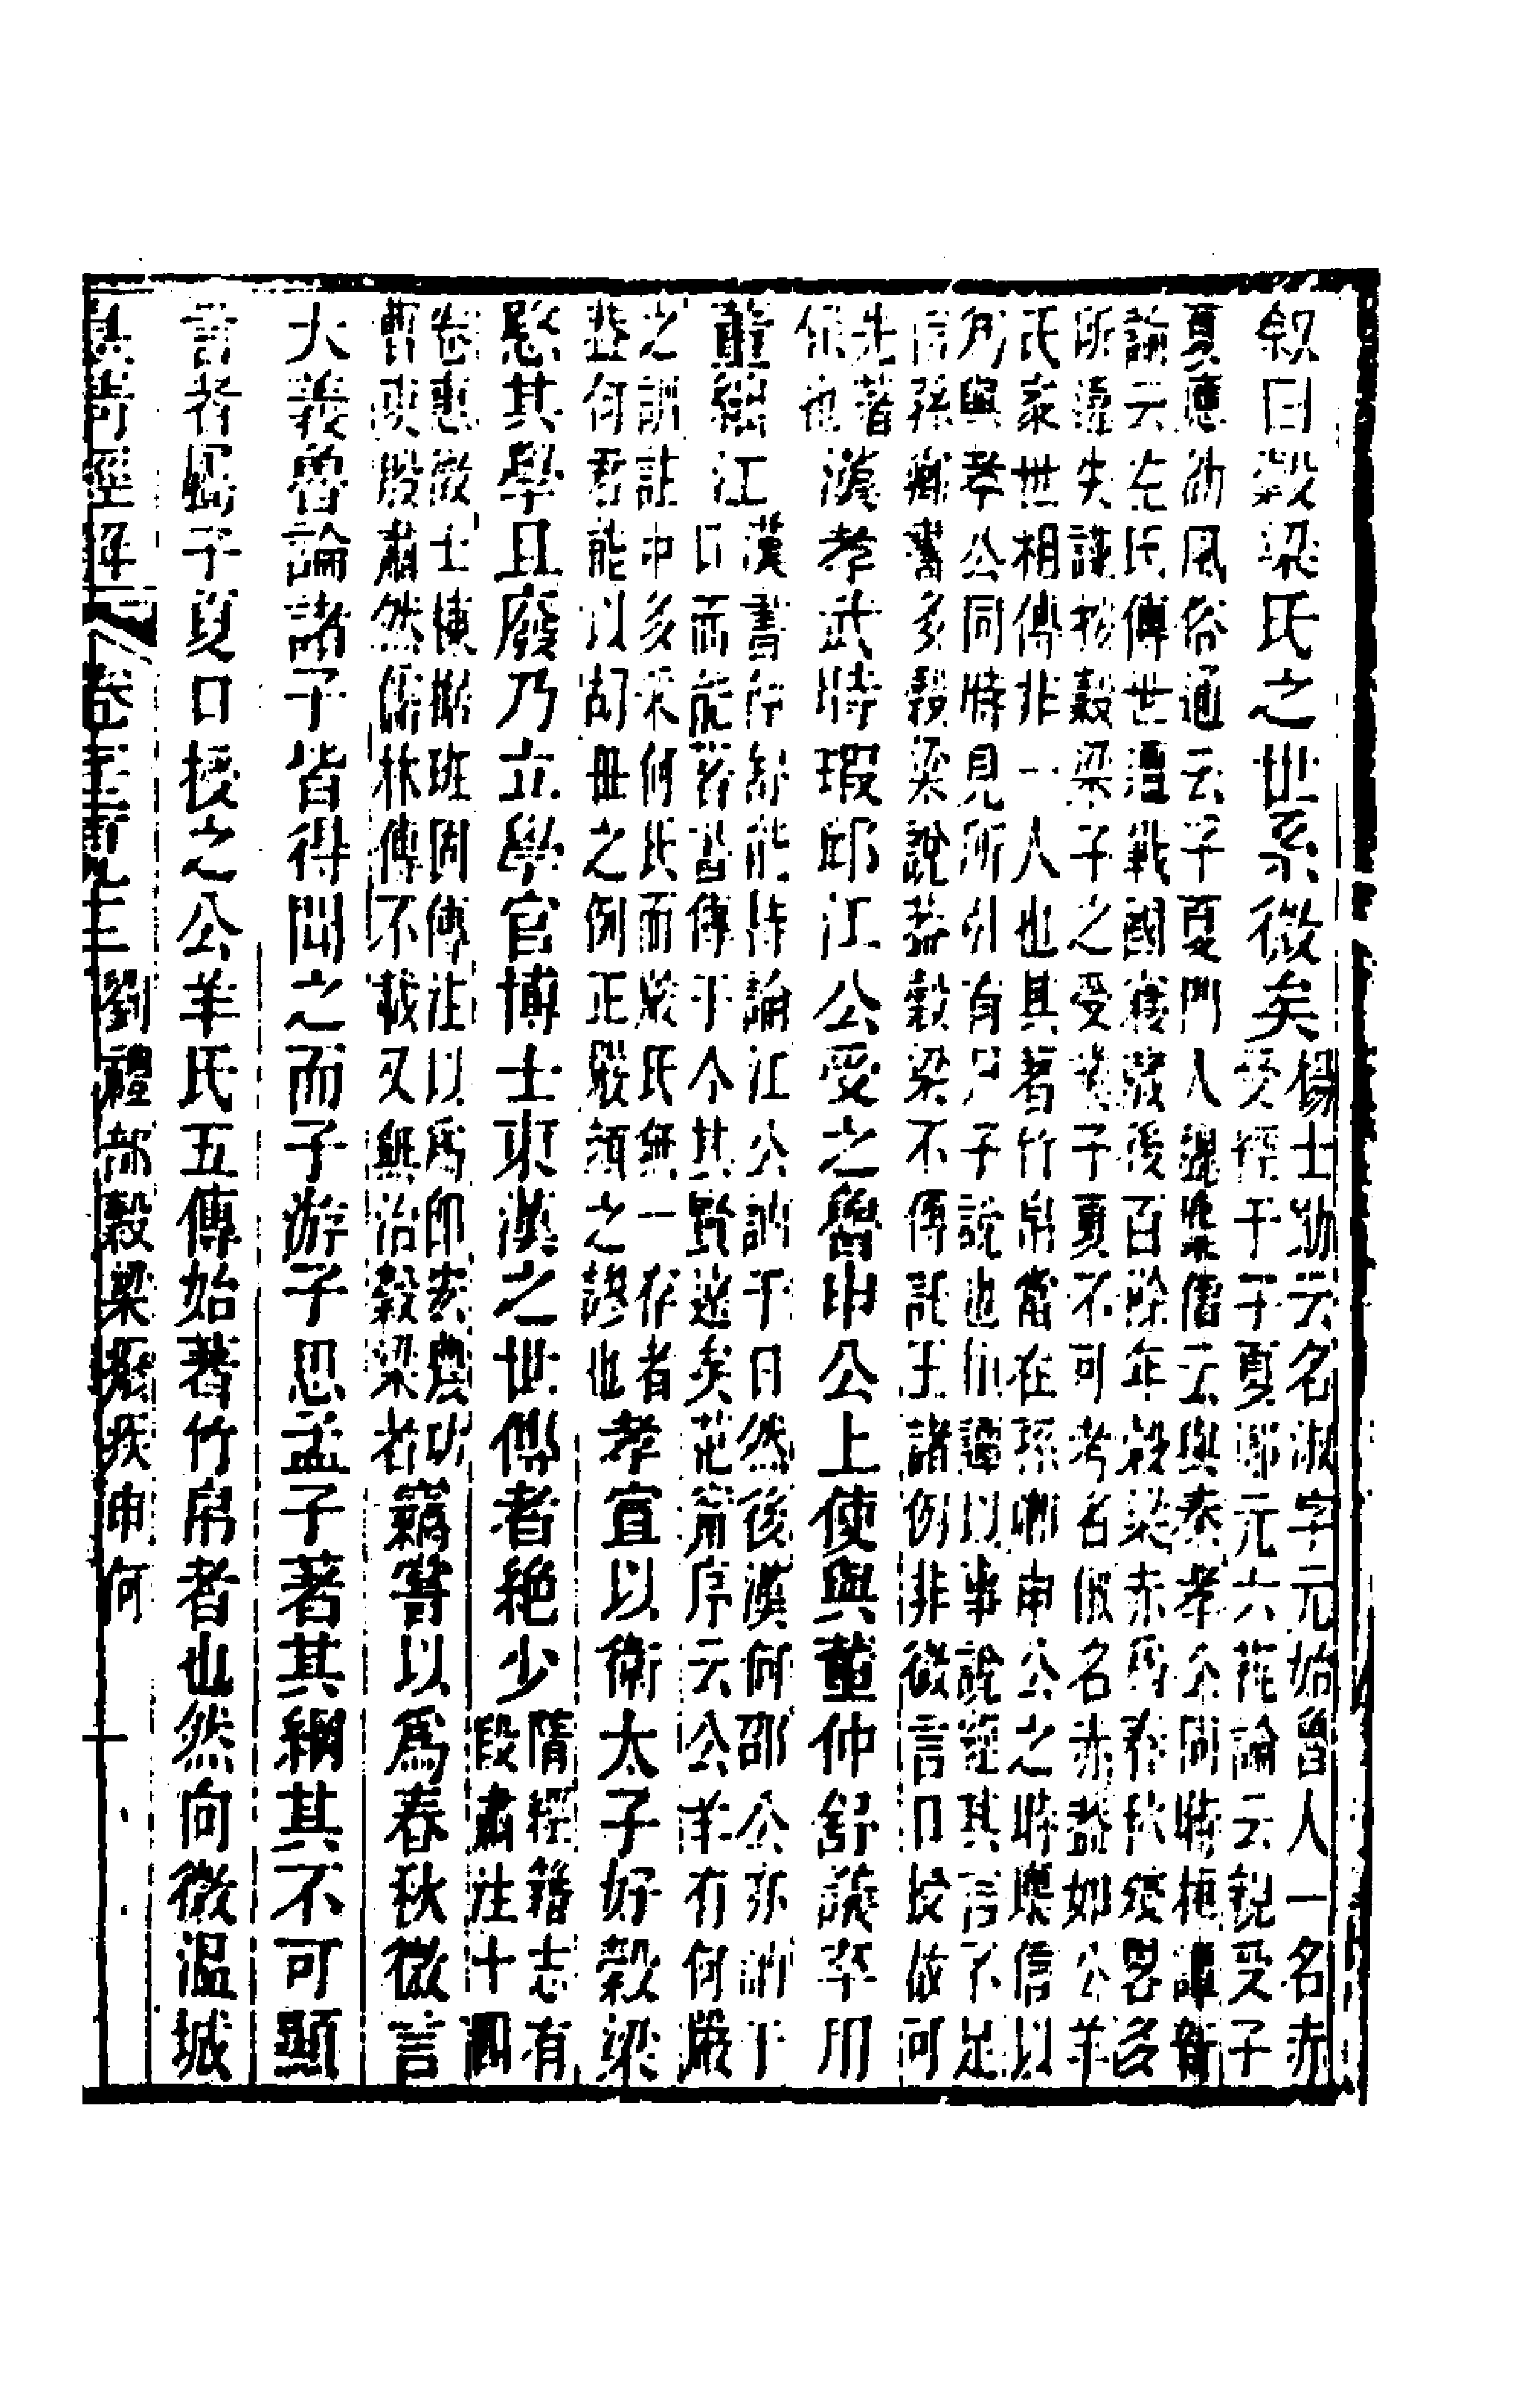 叙曰穀梁氏之世系微矣
楊士勛云名淑字元始魯人一名赤
受經于子夏鄭元六蓺論云親受子
夏應劭風俗通云子夏門人麋信云與秦孝公同時桓譚新
論云左氏傳世遭戰國寖廢後百餘年穀梁赤爲春秋殘畧多
所遺失謹按穀梁子之受業子夏不可考名俶名赤蓋如公羊
氏家世相傳非一人也其著竹帛當在孫卿申公之時麋信以
爲與孝公同時見所引有尸子說也桓譚以事說經其言不足
信孫卿書多穀梁說蓋穀梁不傳託王諸例非微言口授故可
先著
也
漢孝武時瑕邱江公受之魯申公上使與董仲舒議卒用
董絀江
漢書仲舒能持論江公訥于口然後漢何邵公亦訥于
口而能著書傳于今其賢遠矣范甯序云公羊有何嚴
之訓註中多采何氏而嚴氏無一存者
茲何君能以胡毋之例正嚴顏之謬也
孝宣以衛太子好穀梁
愍其學且廢乃立學官博士東漢之世傳者絶少
隋經籍志有
段肅注十四
卷惠徵士棟據班固傳注以爲即宏農功
曹吏殷肅然儒林傳不載又無治穀梁者
竊嘗以爲春秋微言
大義魯論諸子皆得聞之而子游子思孟子著其綱其不可顯
言者屬子夏口授之公羊氏五傳始著竹帛者也然向微温城
皇清經解 卷 三 劉禮部穀梁廢疾申何